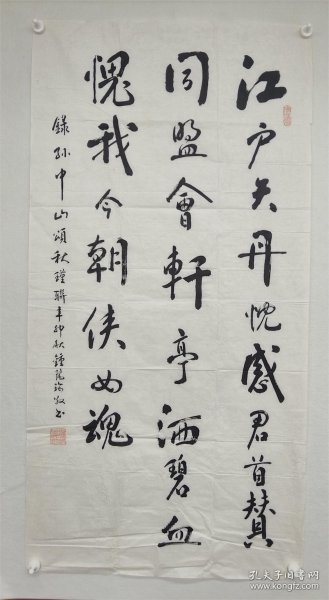 江户矢丹忱感君首賛
同盟會軒亭洒碧血
愧我今朝俠女魂
錄孙中山頌秋瑾聯辛卯秋鍾
孔夫子旧书网